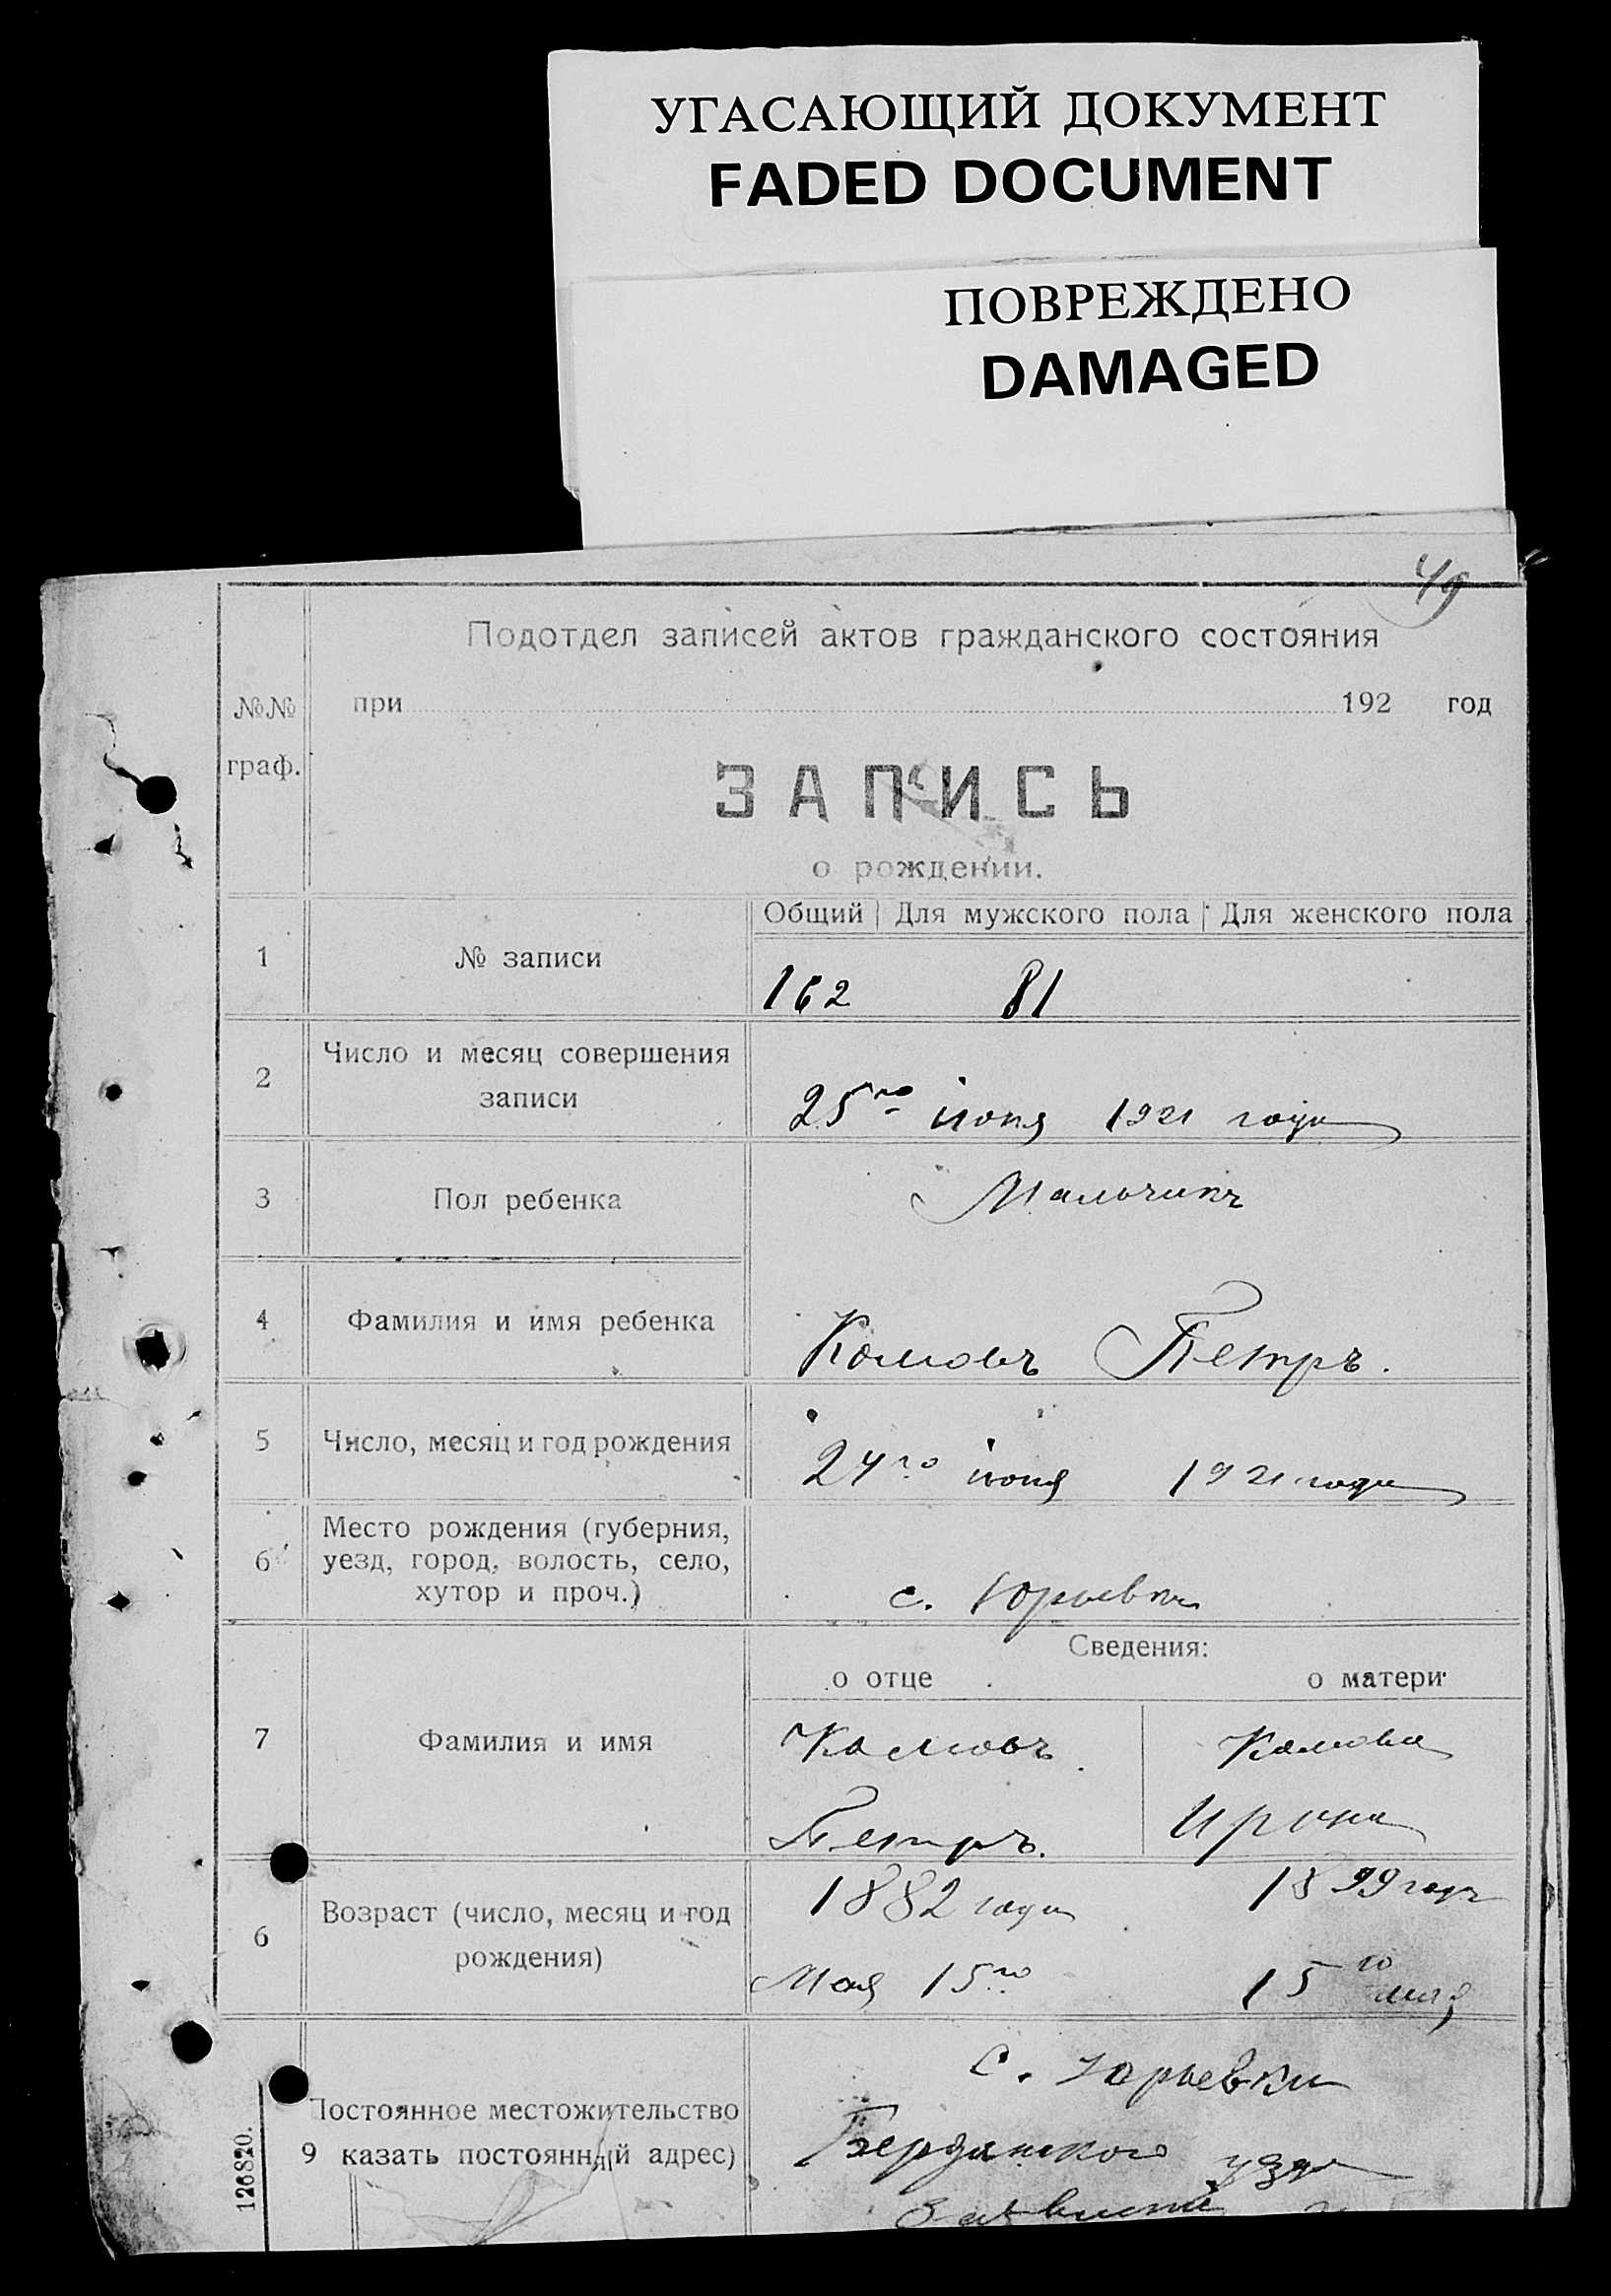 УГАСАЮЩИЙ ДОКУМЕНТ
FADED DOCUMENT
ПОВРЕЖДЕНО
DAMAGED
49
Подотдел записей актов гражданского состояния
№№ граф.
при 192 год
ЗАПИСЬ
о рождении.
Общий Для мужского пола Для женского пола
1 № записи 162 81
2 Число и месяц совершения
записи 25го июня 1921 года
3 Пол ребенка Мальчикъ
4 Фамилия и имя ребенка Комовъ Петръ.
5 Число, месяц и год рождения 24го июня 1921 года
Место рождения (губерния,
6 уезд, город, волость, село,
хутор и проч.) с. Юрьевка
Сведения:
о отце о матери
7 Фамилия и имя Комовъ Комова
Петръ. Ирина
1882 года 1899 годъ
6 Возраст (число, месяц и год
рождения)
Мая 15го 15го мая
с. Юрьевки
Постоянное местожительство
Бердянского
9 казать постоянный адрес)
126820.